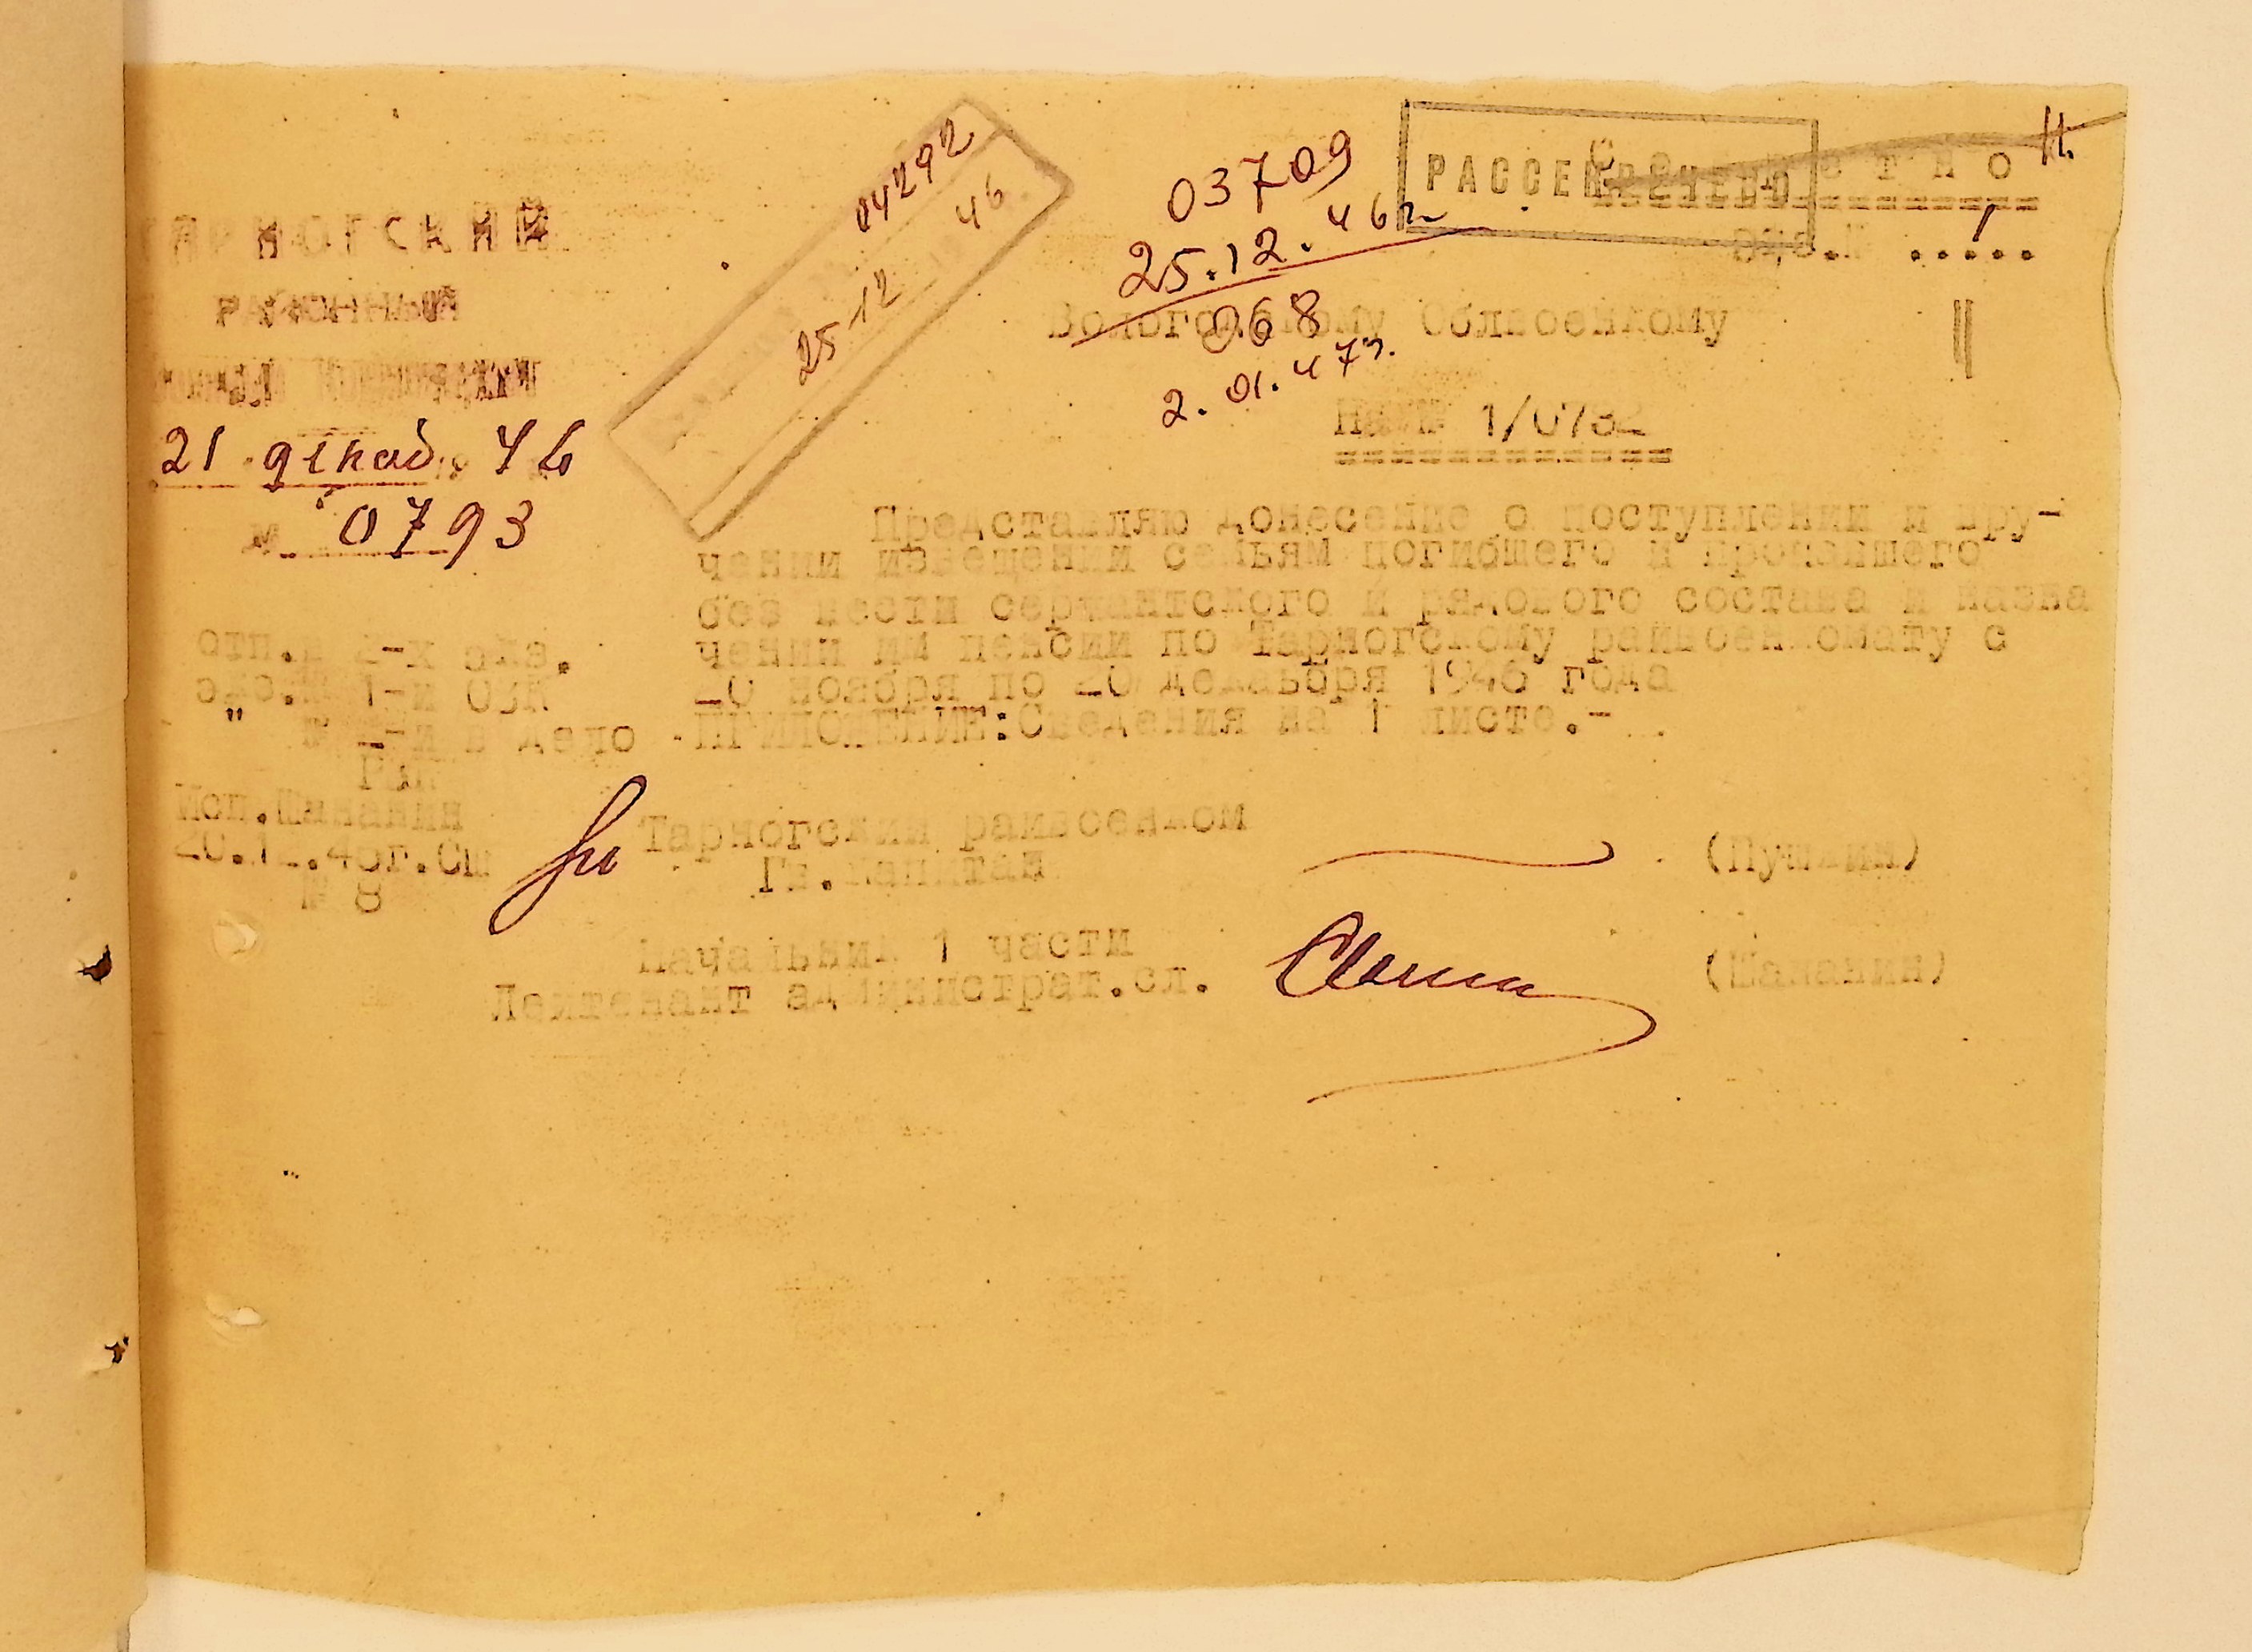 ТАРНОГСКИЙ
РАЙОННЫЙ
ВОЕННЫЙ КОМИССАРИАТ
21 декаб. 46
№ 0793
04292
25 12 46
03709
25.12.46г
068
2.01.47г.
РАССЕКРЕЧЕНО
Секретно
11.
экз.№ ..1...
Вологодскому Облвоенкому
На № 1/0762
Представляю донесение о поступлении и вру-
чении извещений семьям погибшего и пропавшего
без вести сержантского и рядового состава и назна
чении им пенсии по Тарногскому райвоенкомату с
20 ноября по 20 декабря 1946 года
ПРИЛОЖЕНИЕ: Сведения на 1 листе.-
отп.в 2-х экз.
экз.№ 1-й ОВК
" № 2-й в дело
РВК
Исп.Шананин
20.12.46г.СШ
№ 8
Тарногский райвоенком
Гв.капитан
(Пушкин)
Начальник 1 части
Лейтенант администрат.сл.
(Шананин)